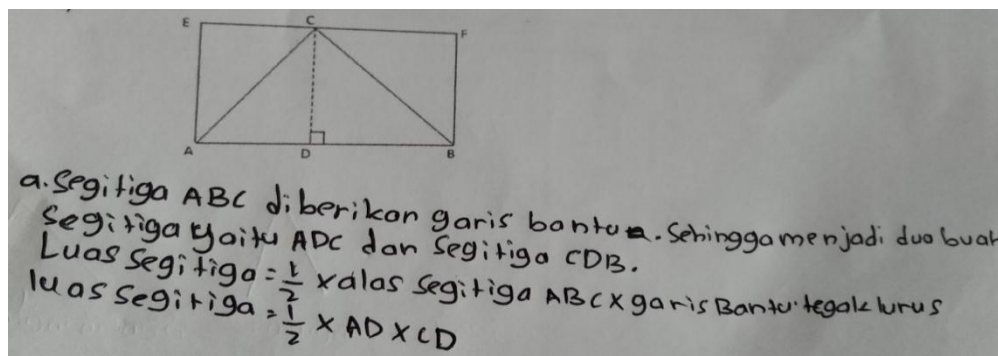 E C F
A D B
a. Segitiga ABC diberikan garis bantu. Sehingga menjadi dua buah
Segitiga yaitu ADC dan Segitiga CDB.
Luas Segitiga = 1/2 x alas Segitiga ABC x garis Bantu tegak lurus
luas Segitiga = 1/2 x AD x CD